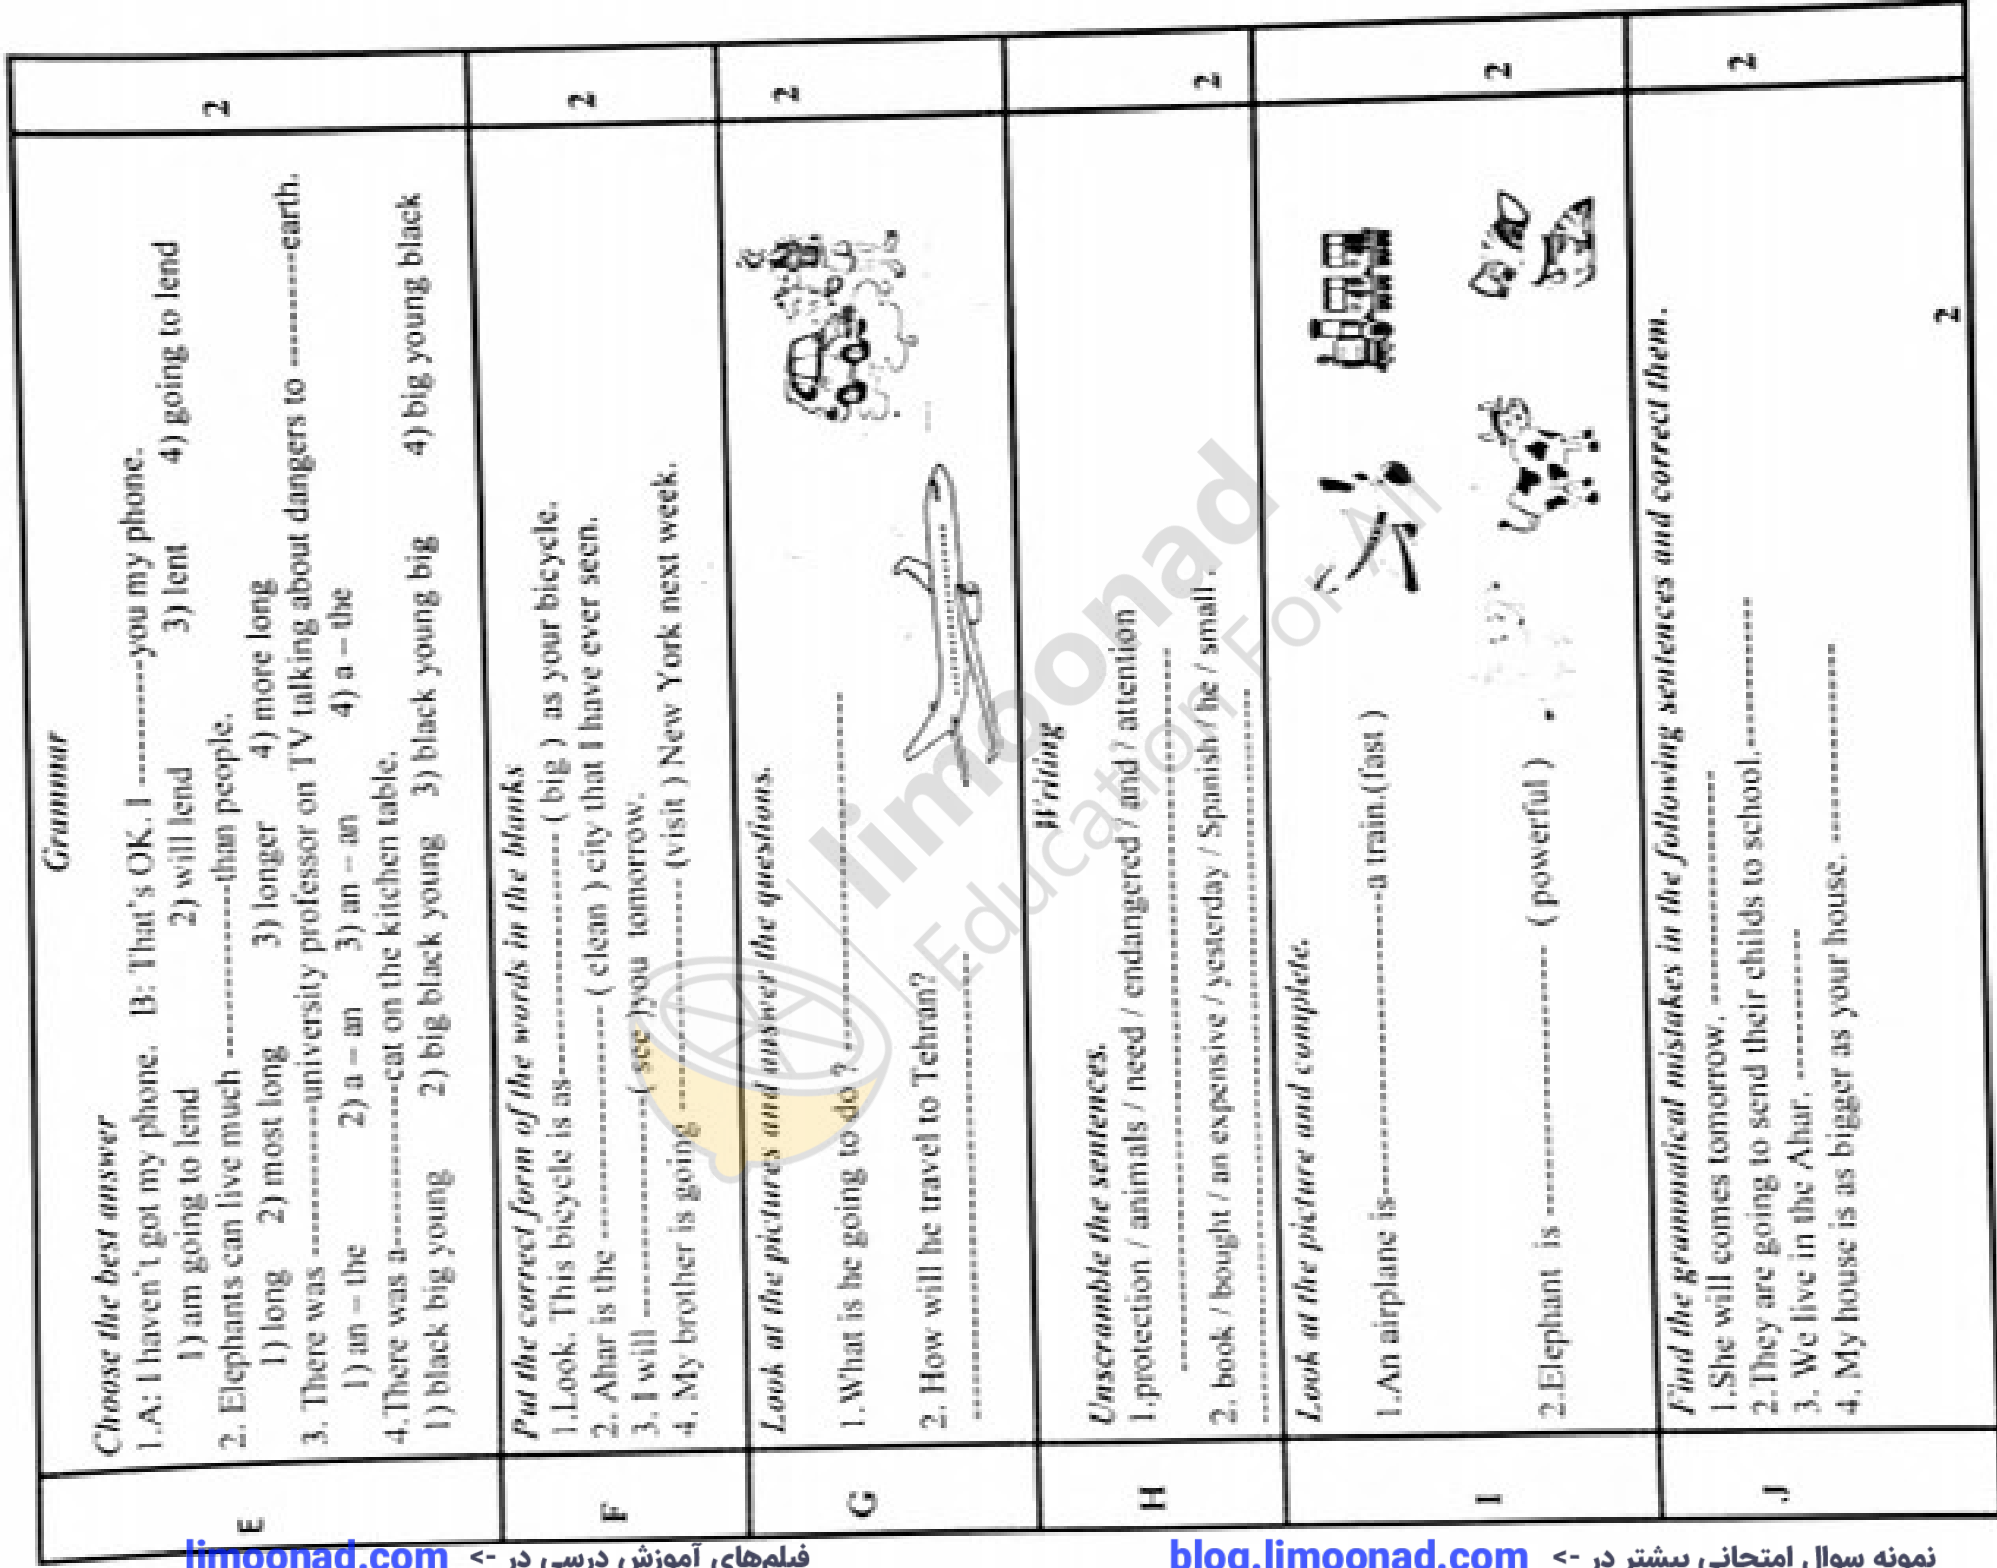 Grammar
E
2
Choose the best answer
1.A: I haven't got my phone. B: That's OK. I ------------you my phone.
1) am going to lend 2) will lend 3) lent 4) going to lend
2. Elephants can live much ---------------than people.
1) long 2) most long 3) longer 4) more long
3. There was ---------------university professor on TV talking about dangers to -----------earth.
1) an – the 2) a – an 3) an – an 4) a – the
4.There was a---------------cat on the kitchen table.
1) black big young 2) big black young 3) black young big 4) big young black
F
2
Put the correct form of the words in the blanks
1.Look. This bicycle is as------------------------ ( big ) as your bicycle.
2. Ahar is the --------------------- ( clean ) city that I have ever seen.
3. I will ----------------( see )you tomorrow.
4. My brother is going --------------------- (visit ) New York next week.
G
2
Look at the pictures and answer the questions.
1.What is he going to do ? --------------------------------
2. How will he travel to Tehran?
------------------------------------------
Writing
H
2
Unscramble the sentences.
1.protection / animals / need / endangered / and / attention
------------------------------------------------------------
2. book / bought / an expensive / yesterday / Spanish / he / small .
------------------------------------------------------------
I
2
Look at the picture and complete.
1.An airplane is------------------------a train.(fast )
2.Elephant is ------------------------ ( powerful ) .
J
2
Find the grammatical mistakes in the following sentences and correct them.
1.She will comes tomorrow. ---------------------
2.They are going to send their childs to school.--------------
3. We live in the Ahar. ---------------
4. My house is as bigger as your house. ------------------
2
limoonad
Education For All
فیلم‌های آموزش درسی در -> limoonad.com
نمونه سوال امتحانی بیشتر در -> blog.limoonad.com